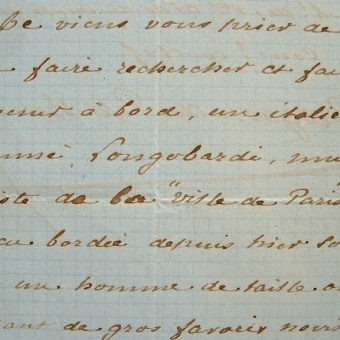 Je viens vous prier de
faire rechercher et fai
à bord, un italie
mmé Longobardi, mu
iste de la "Ville de Pari
bordée depuis hier so
un homme de taille
ant de gros favoris noirs